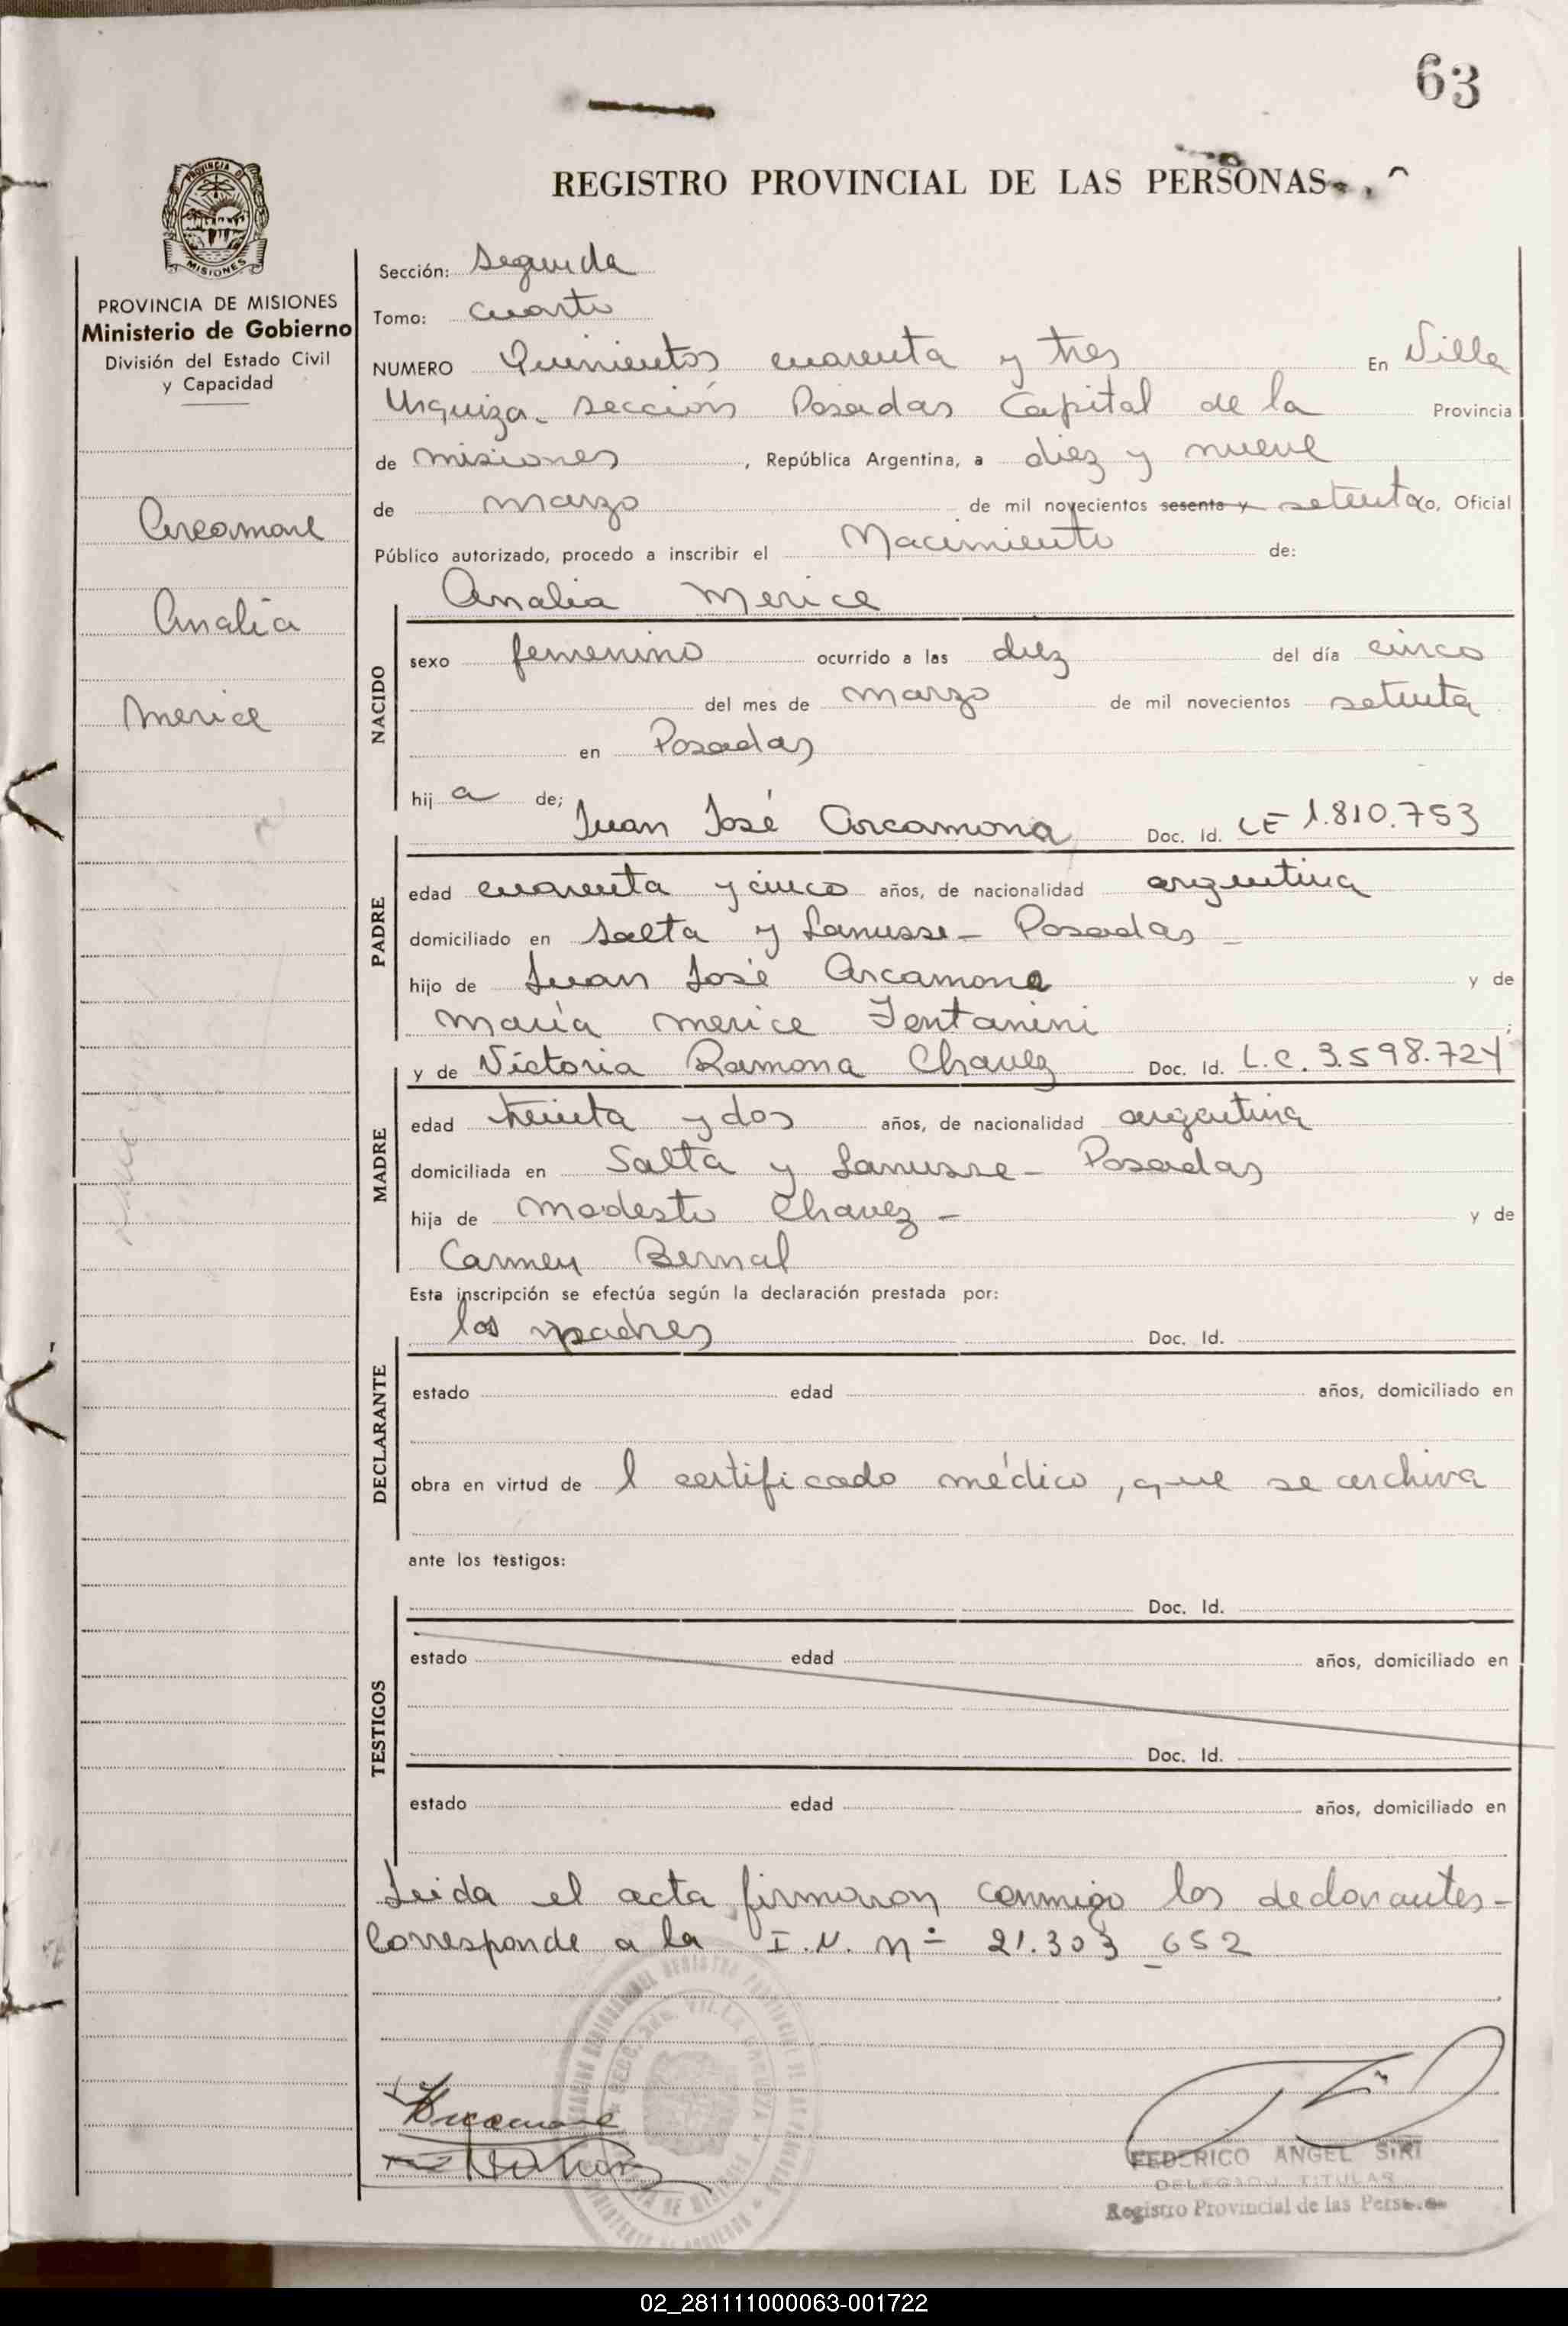 63
REGISTRO PROVINCIAL DE LAS PERSONAS
PROVINCIA DE
MISIONES
PROVINCIA DE MISIONES
Ministerio de Gobierno
División del Estado Civil
y Capacidad
Arcamone
Analía
Merice
Sección: Segunda
Tomo: Cuarto
NUMERO Quinientos cuarenta y tres En Villa
Urquiza. sección Posadas Capital de la Provincia
de misiones, República Argentina, a diez y nueve
de marzo de mil novecientos sesenta y setenta yo, Oficial
Público autorizado, procedo a inscribir el Nacimiento de:
Analia Merice
NACIDO
sexo femenino ocurrido a las diez del día cinco
del mes de marzo de mil novecientos setenta
en Posadas
hij a de;
Juan José Arcamona Doc. Id. LE 1.810.753
PADRE
edad cuarenta y cinco años, de nacionalidad argentina
domiciliado en Salta y Lanusse - Posadas -
hijo de Juan José Arcamone y de
María Merice Fentanini ;
y de Victoria Ramona Chavez Doc. Id. L.C. 3.598.724
MADRE
edad treinta y dos años, de nacionalidad argentina
domiciliada en Salta y Lanusse - Posadas
hija de Modesto Chavez - y de
Carmen Bernal
Esta inscripción se efectúa según la declaración prestada por:
los padres Doc. Id.
DECLARANTE
estado edad años, domiciliado en
obra en virtud de l certificado médico, que se archiva
ante los testigos:
Doc. Id.
TESTIGOS
estado edad años, domiciliado en
Doc. Id.
estado edad años, domiciliado en
Leida el acta firmaron conmigo los declarantes-
Corresponde a la I.N. Nº 21.303_652
Arcamone
FEDERICO ANGEL SIRI
DELEGADO TITULAR
Registro Provincial de las Personas
02_281111000063-001722